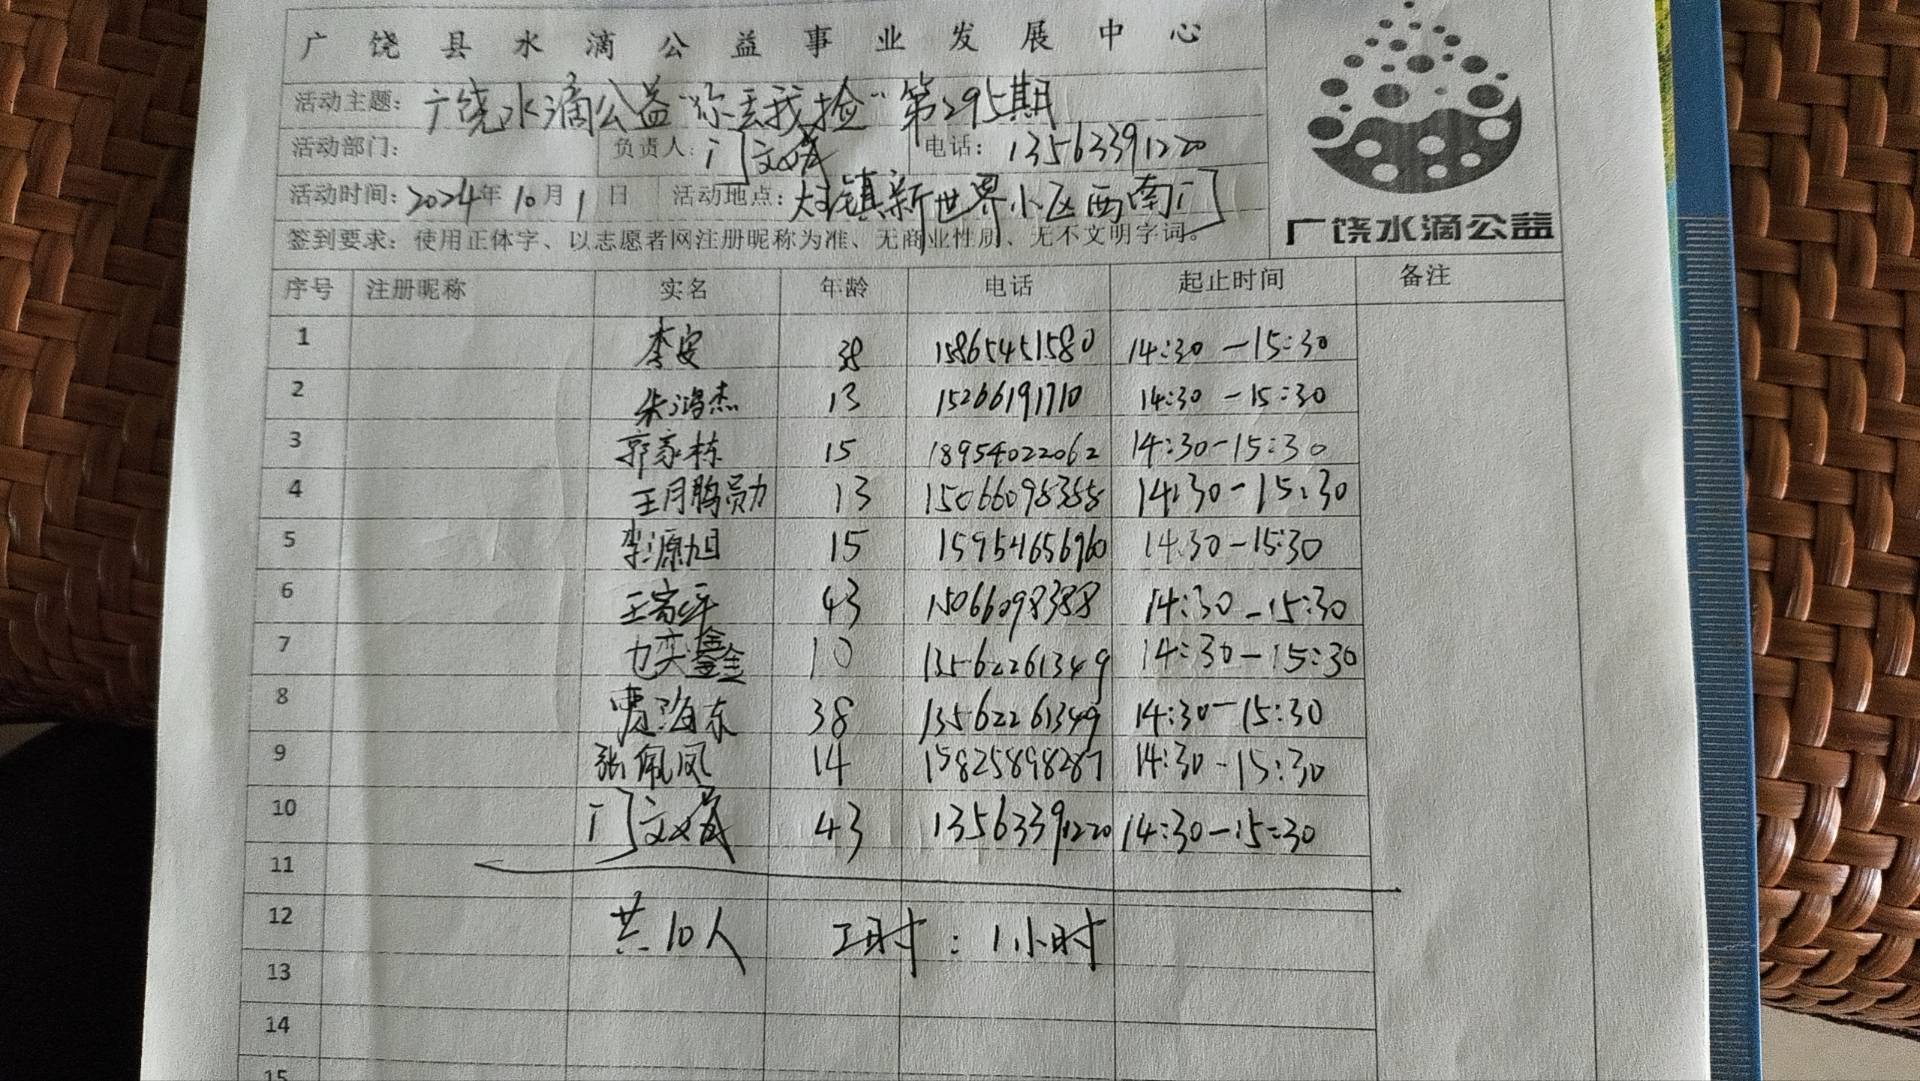 广饶县水滴公益事业发展中心
活动主题：广饶水滴公益"你丢我捡"第295期
活动部门： 负责人：门文成 电话：13563391220
活动时间：2024年10月1日 活动地点：大王镇新世界小区西南门
签到要求：使用正体字、以志愿者网注册昵称为准、无商业性质、无不文明字词。
广饶水滴公益
序号 注册昵称 实名 年龄 电话 起止时间 备注
1 李安 38 15865451580 14:30-15:30
2 朱鸿杰 13 15266191710 14:30-15:30
3 郭家栋 15 18954022062 14:30-15:30
4 13 14:30-15:30
5 李源旭 15 15954656960 14:30-15:30
6 43 15066098388 14:30-15:30
7 10 13562261349 14:30-15:30
8 海东 38 13562261349 14:30-15:30
9 张佩凤 14 15825898287 14:30-15:30
10 门文成 43 13563391220 14:30-15:30
11
12 共10人 工时：1小时
13
14
15